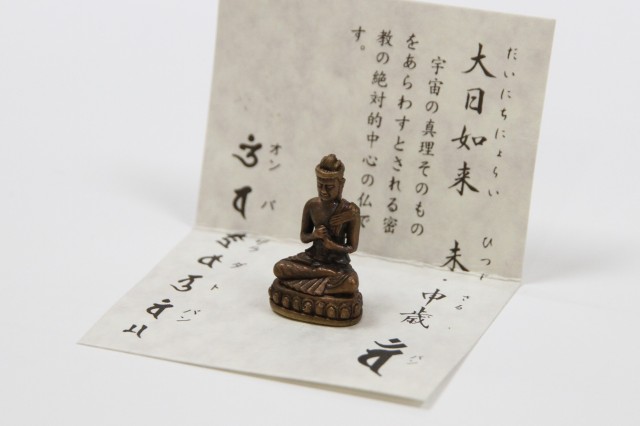 だいにちにょらい
大日如来
宇宙の真理そのもの
をあらわすとされる密
教の絶対的中心の仏で
す。
ひつ
さる
未・申歳
バン
オン バ ザラ ダ ト バン